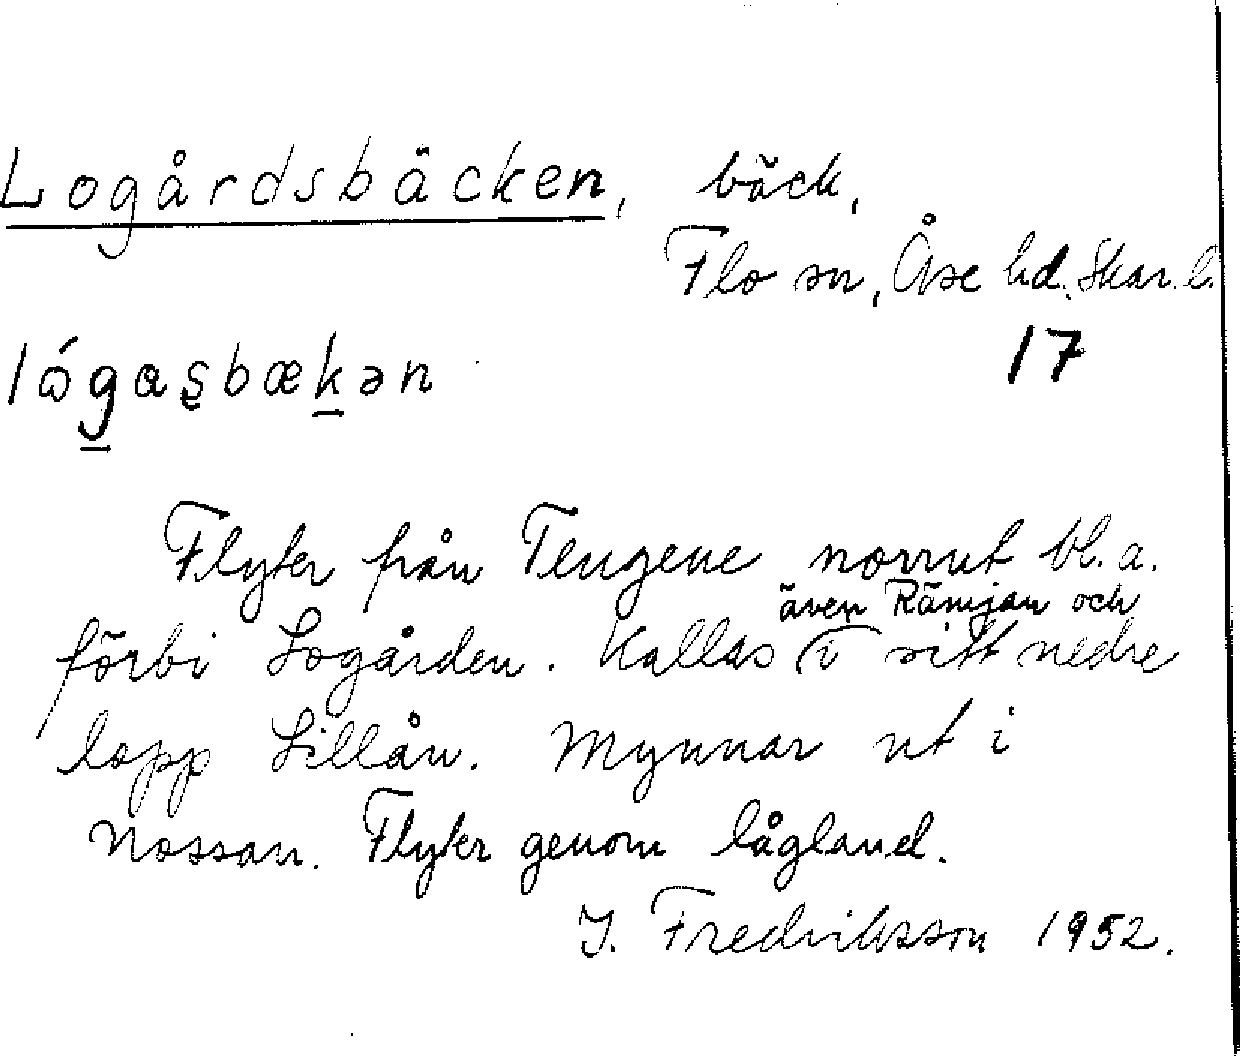 Logårdsbäcken, bäck,
Flo sn, Åse hd. Skar. l.
17
lógasbækən
Flyter från Tengene norrut bl.a.
även Rämjan och
förbi Logården. Kallas i sitt nedre
lopp Lillån. Mynnar ut i
Nossan. Flyter genom lågland.
I. Fredriksson 1952.